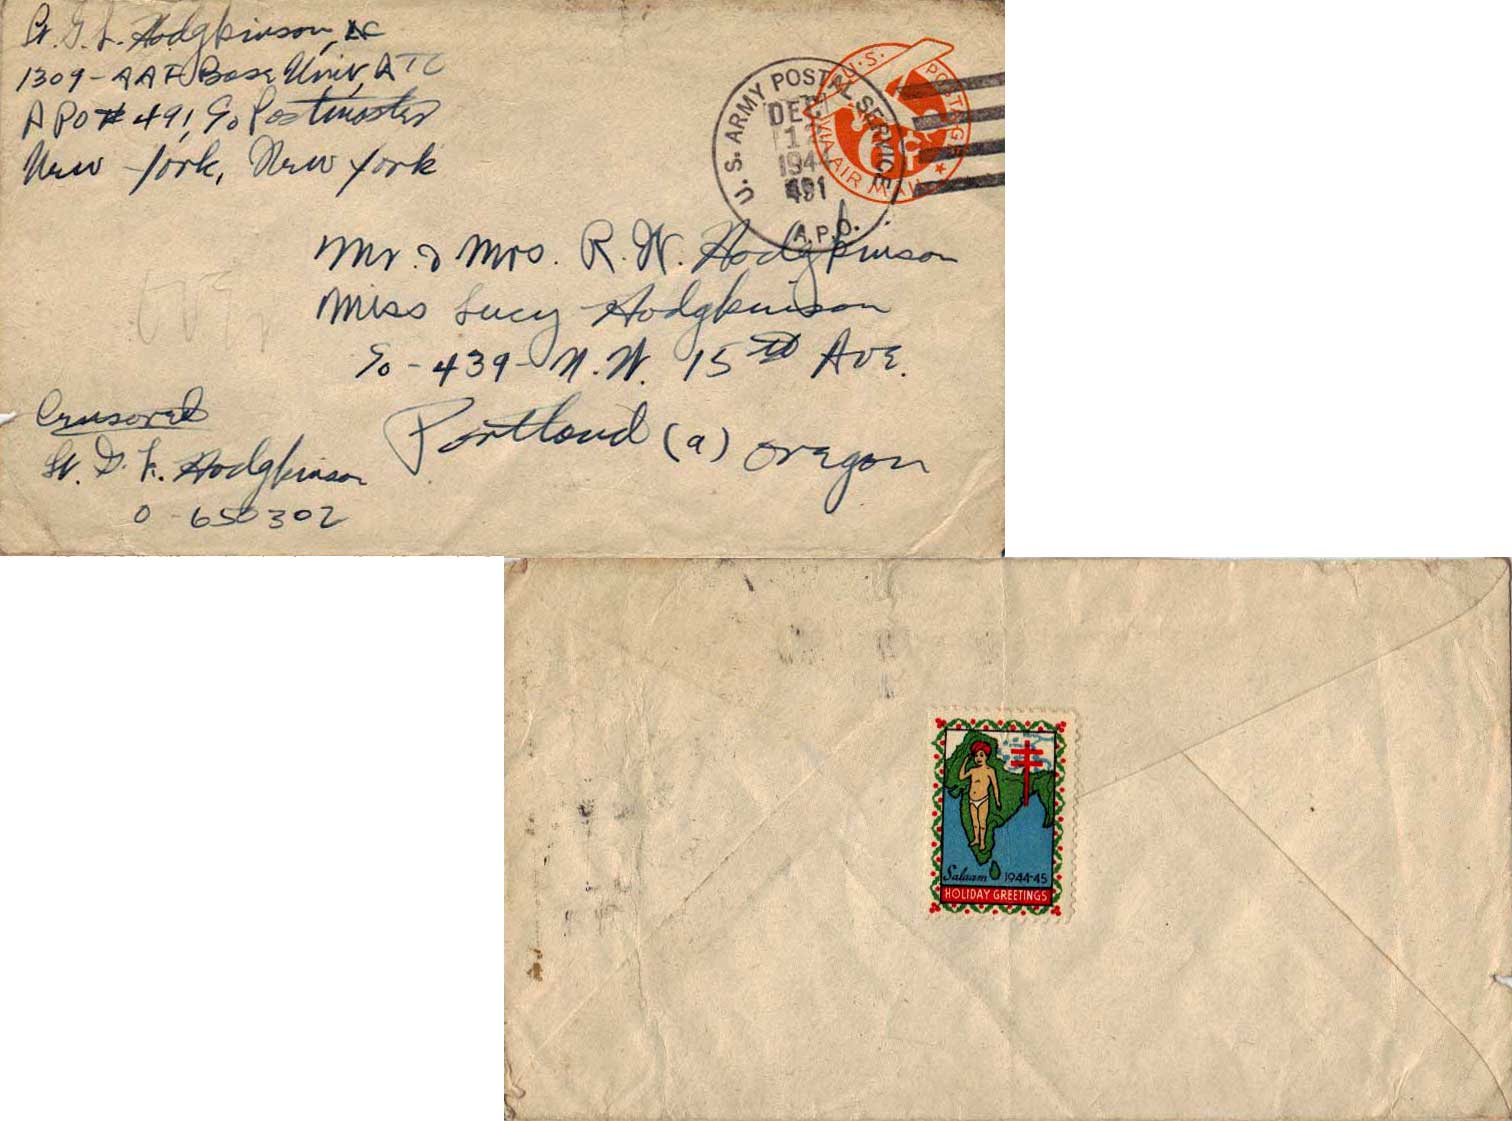 G. L. Hodgkinson, AC
1309-AAF Base Unit, ATC
APO # 491, c/o Postmaster
New York, New York
U.S. ARMY POSTAL SERVICE
DEC
12
1944
491
A.P.O.
U.S. POSTAGE
6¢
VIA AIR MAIL
Mr. & Mrs. R. W. Hodgkinson
Miss Lucy Hodgkinson
c/o - 439 - N.W. 15th Ave.
Portland (9) Oregon
Censored
Lt. G. L. Hodgkinson
0-650302
Salaam 1944-45
HOLIDAY GREETINGS